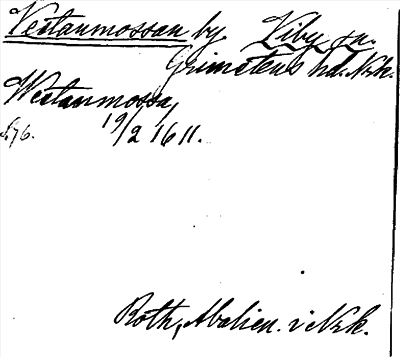 Vestanmossan by Viby sn.
Grimstens hd. Nrk.
Westanmossa,
19/2 1611.
Roth, Abalien. i Nrk.